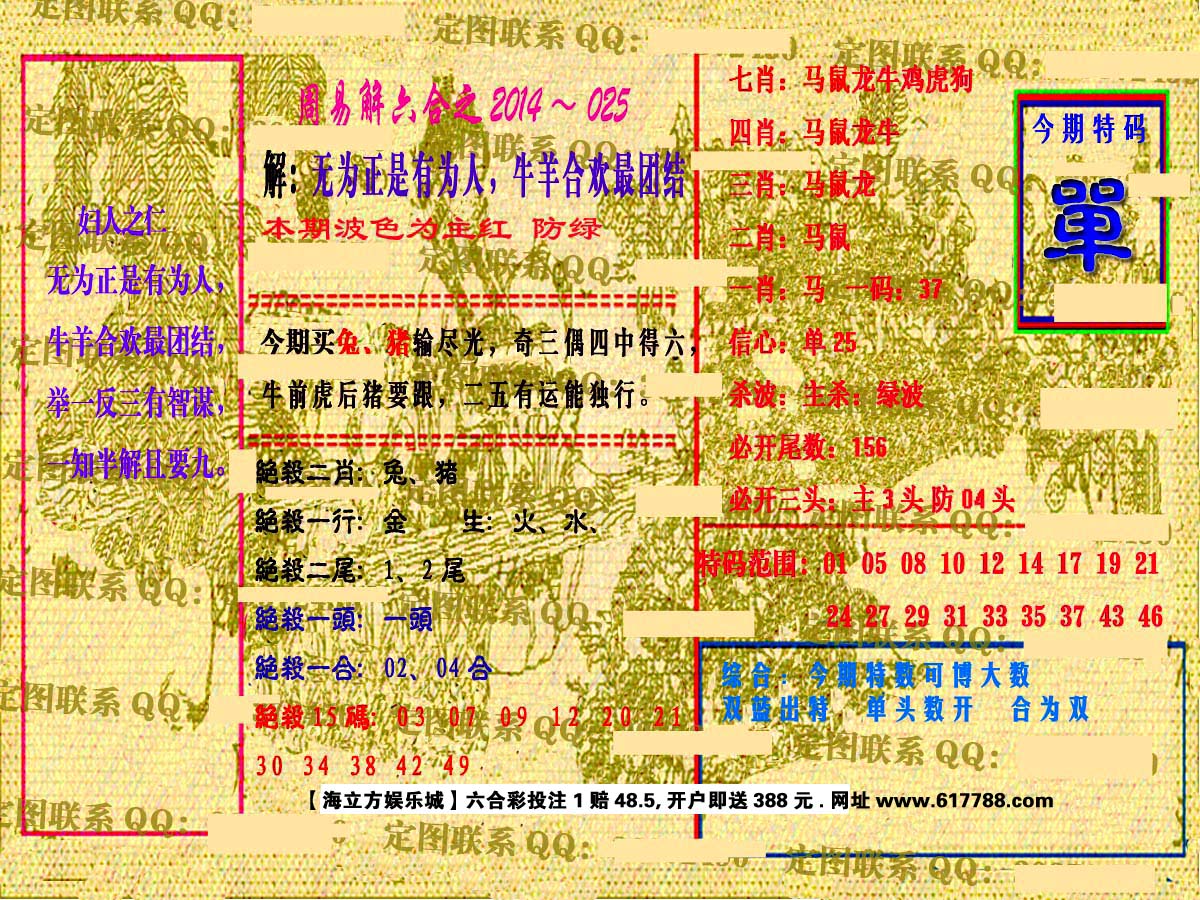 定图联系 QQ:
定图联系 QQ:
定图联系 QQ:
周易解六合之 2014～025
解:无为正是有为人，牛羊合欢最团结
本期波色为主红 防绿
妇人之仁
无为正是有为人，
牛羊合欢最团结，
举一反三有智谋，
一知半解且要九。
今期买兔、猪输尽光，奇三偶四中得六，
牛前虎后猪要跟，二五有运能独行。
絕殺二肖: 兔、猪
絕殺一行: 金 生: 火、水、
絕殺二尾: 1、2尾
絕殺一頭: 一頭
絕殺一合: 02、04合
絕殺15碼: 03 07 09 12 20 21
30 34 38 42 49
七肖: 马鼠龙牛鸡虎狗
四肖: 马鼠龙牛
三肖: 马鼠龙
二肖: 马鼠
一肖: 马 一码: 37
信心: 单25
杀波: 主杀: 绿波
必开尾数: 156
必开三头: 主3头防04头
今期特码
單
特码范围: 01 05 08 10 12 14 17 19 21
24 27 29 31 33 35 37 43 46
综合: 今期特数可博大数
双蓝出特 单头数开 合为双
【海立方娱乐城】六合彩投注1赔48.5,开户即送388元.网址www.617788.com
定图联系 QQ:
定图联系 QQ:
定图联系 QQ: